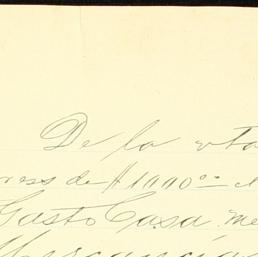 De la vta
ress de $1000.00 el
Gasto Casa me
Mercancía